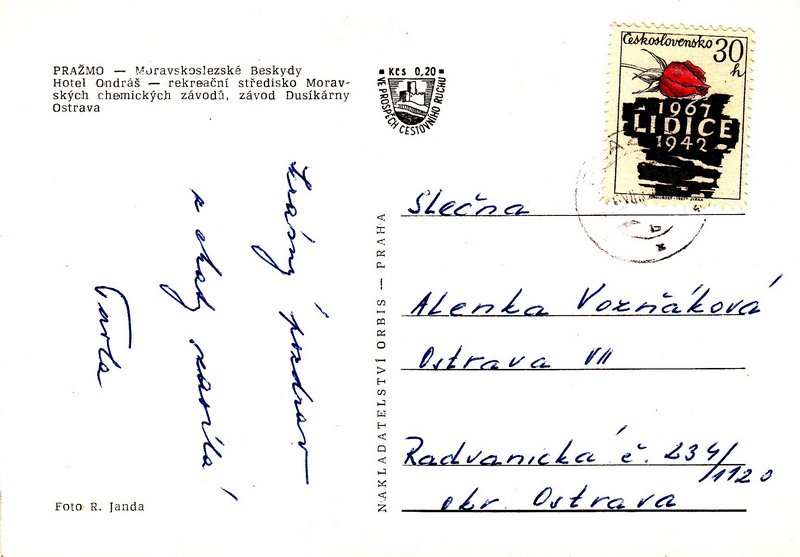 PRAŽMO — Moravskoslezské Beskydy
Hotel Ondráš — rekreační středisko Morav-
ských chemických závodů, závod Dusíkárny
Ostrava
Kčs 0,20
VE PROSPĚCH CESTOVNÍHO RUCHU
Československo 30
h
1967
LIDICE
1942
krásný pozdrav
z chaty zasílá
NAKLADATELSTVÍ ORBIS — PRAHA
Slečna
Alenka Vozňáková
Ostrava VII
Radvanická č. 234/1120
okr. Ostrava
Foto R. Janda